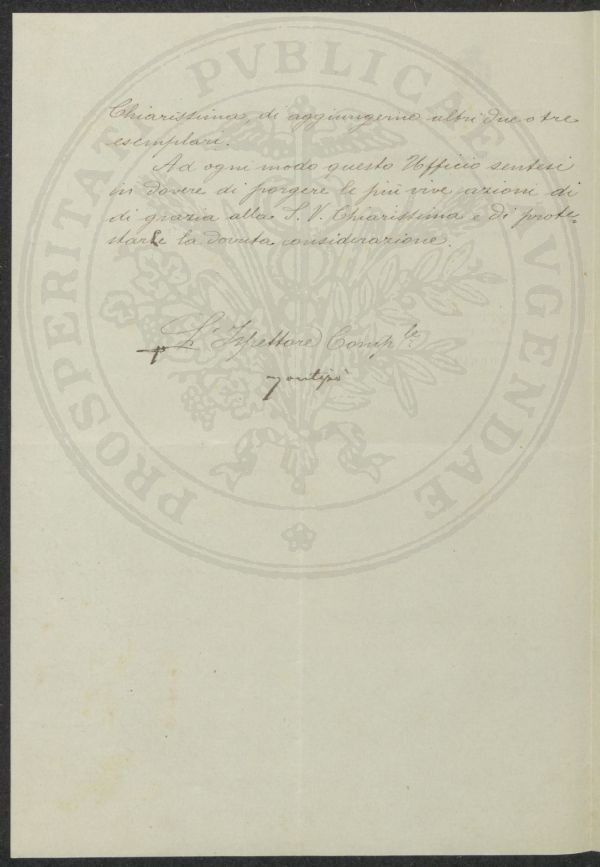 Chiarissima, di aggiungerne altri due o tre
esemplari.
Ad ogni modo questo Ufficio sentesi
in dovere di porgere le più vive azioni di
di grazia alla S. V. Chiarissima e di prote=
starLe la dovuta considerazione.
p L'Ispettore Comp.le
PROSPERITATI PVBLICAE AVGENDAE